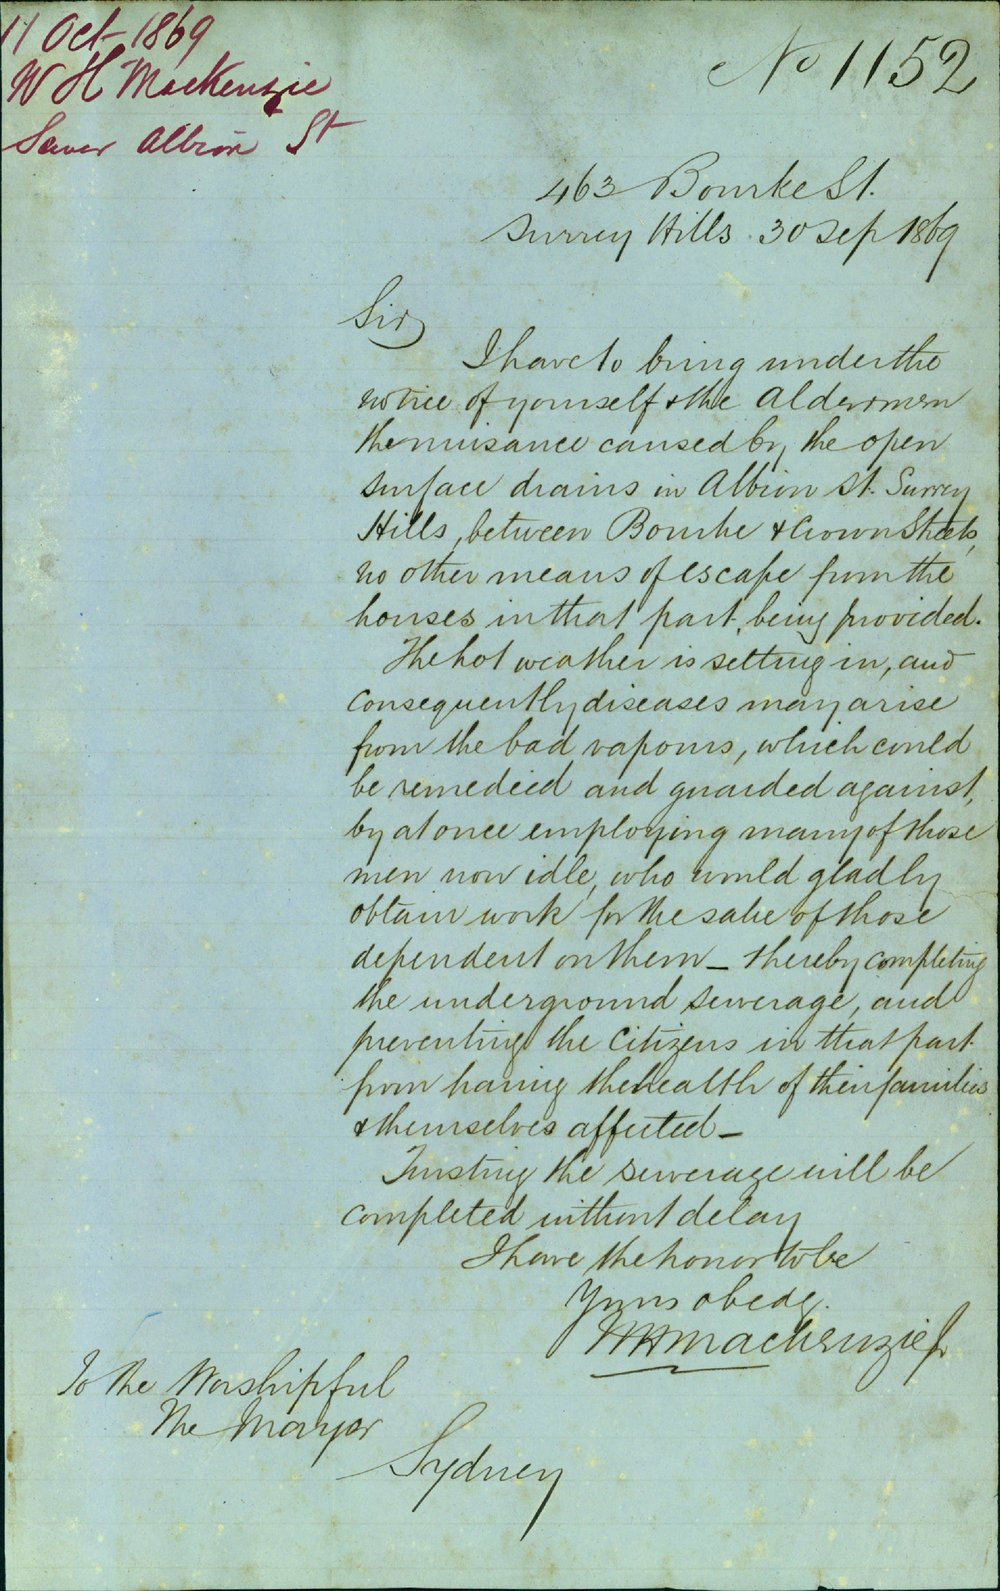 11 Oct 1869
W H MacKenzie
Sewer Albion St
No 1152
463 Bourke St.
Surrey Hills. 30 Sep 1869
Sir,
I have to bring under the
notice of yourself & the Aldermen
the nuisance caused by the open
surface drains in Albion St. Surry
Hills, between Bourke & Crown Streets,
no other means of escape from the
houses in that part, being provided.
The hot weather is setting in, and
consequently diseases may arise
from the bad vapours, which could
be remedied and guarded against,
by at once employing many of those
men now idle, who would gladly
obtain work for the sake of those
dependent on them – thereby completing
the underground sewerage, and
preventing the Citizens in that part
from having the health of their families
& themselves affected –
Trusting the sewerage will be
completed without delay
I have the honor to be
Yours obedt.
WH Mackenzie Jr
To the Worshipful
The Mayor
Sydney